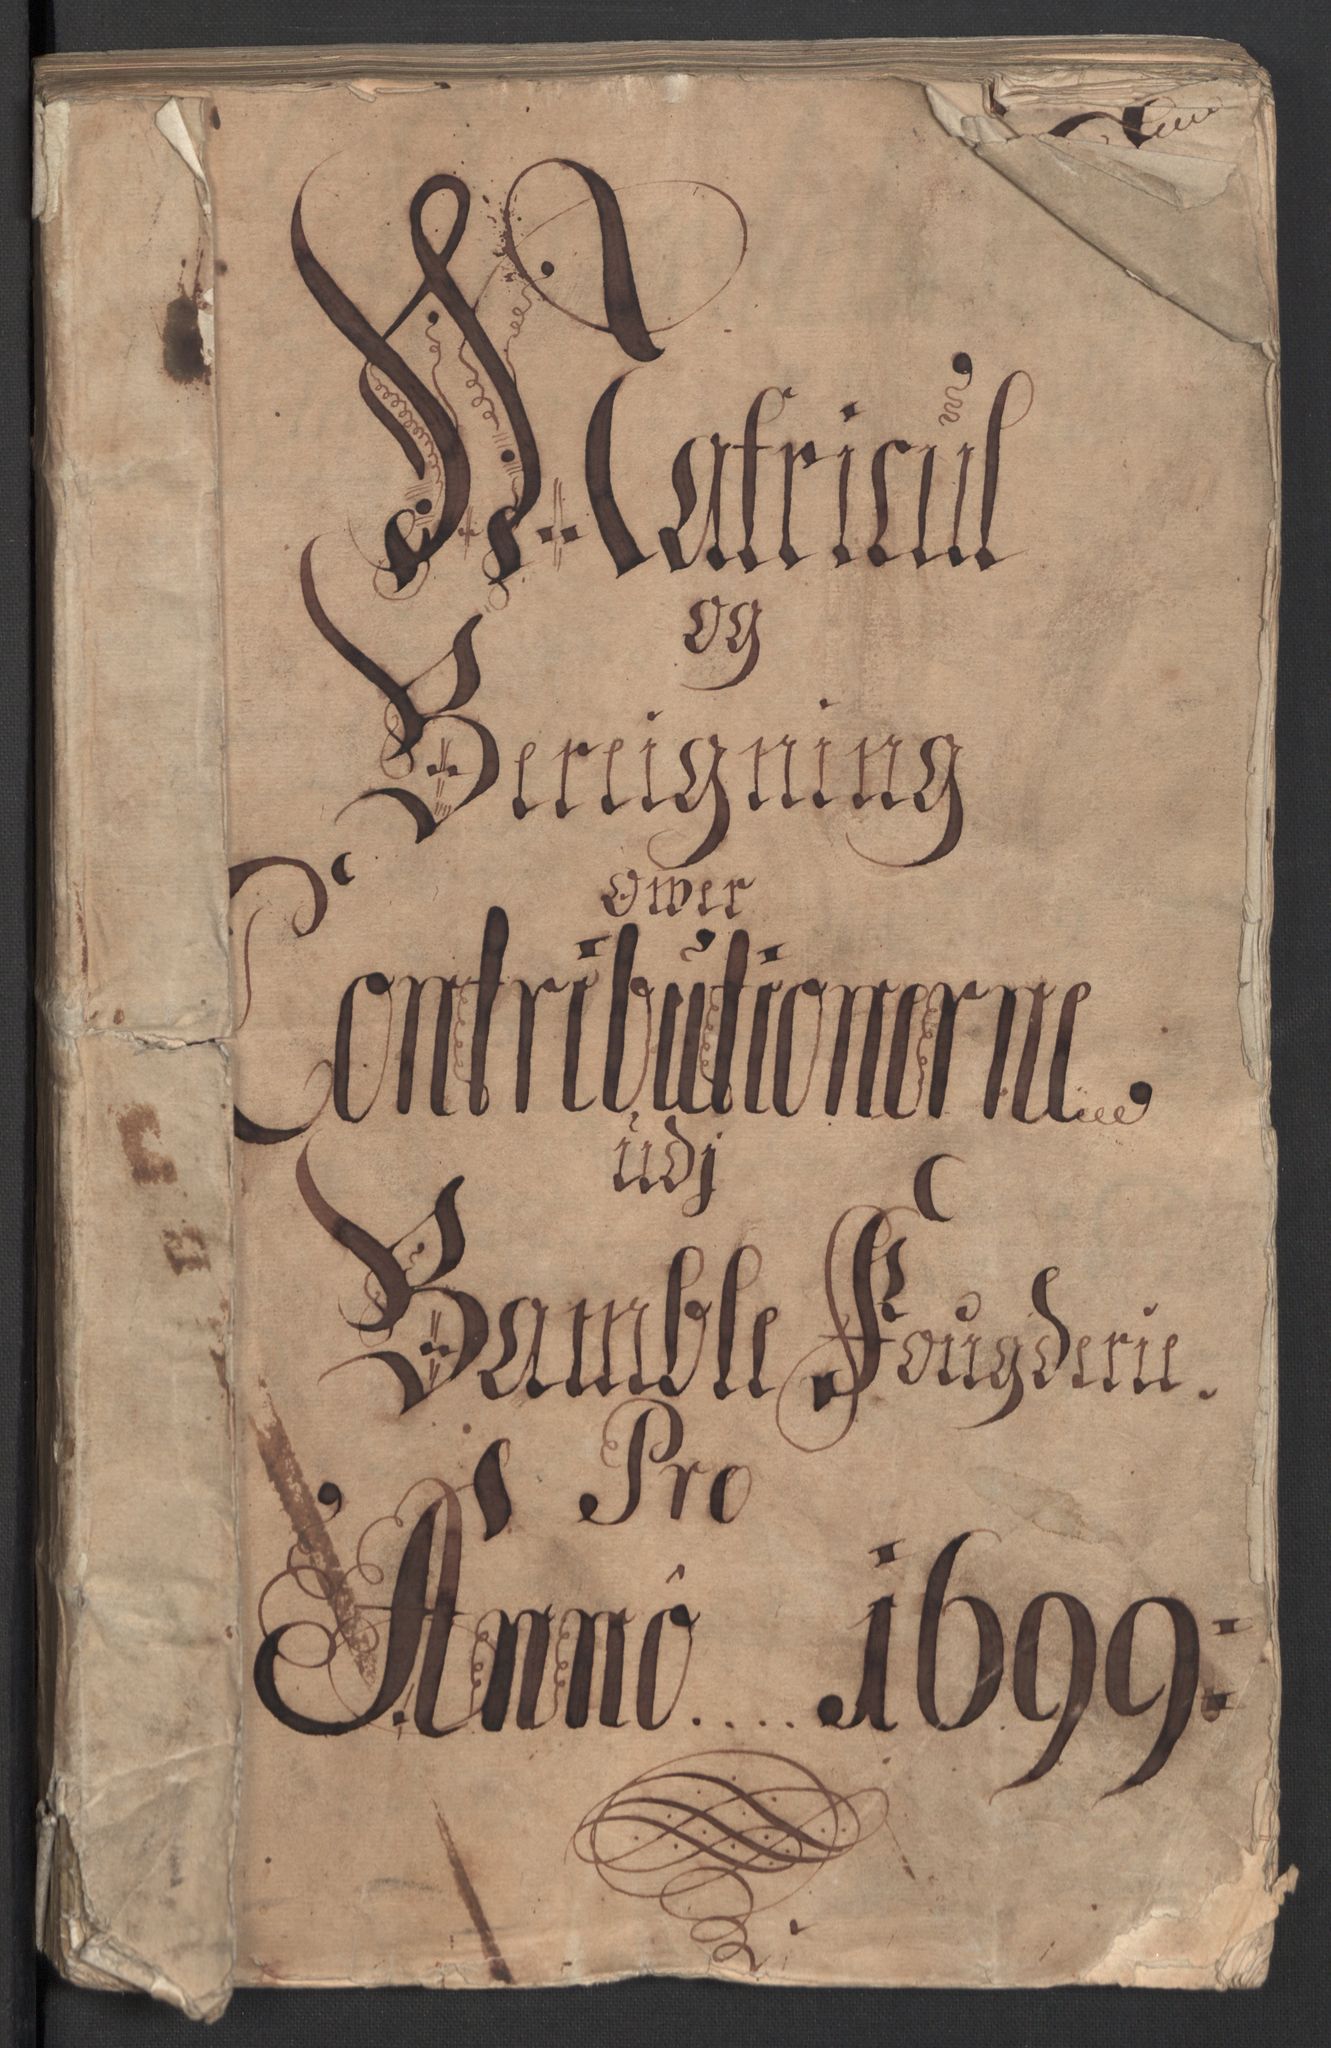 Matricul
og
Bereigning
ower
Contributionerne
udj
Bamble Fougderie.
Pro
Anno .... 1699: